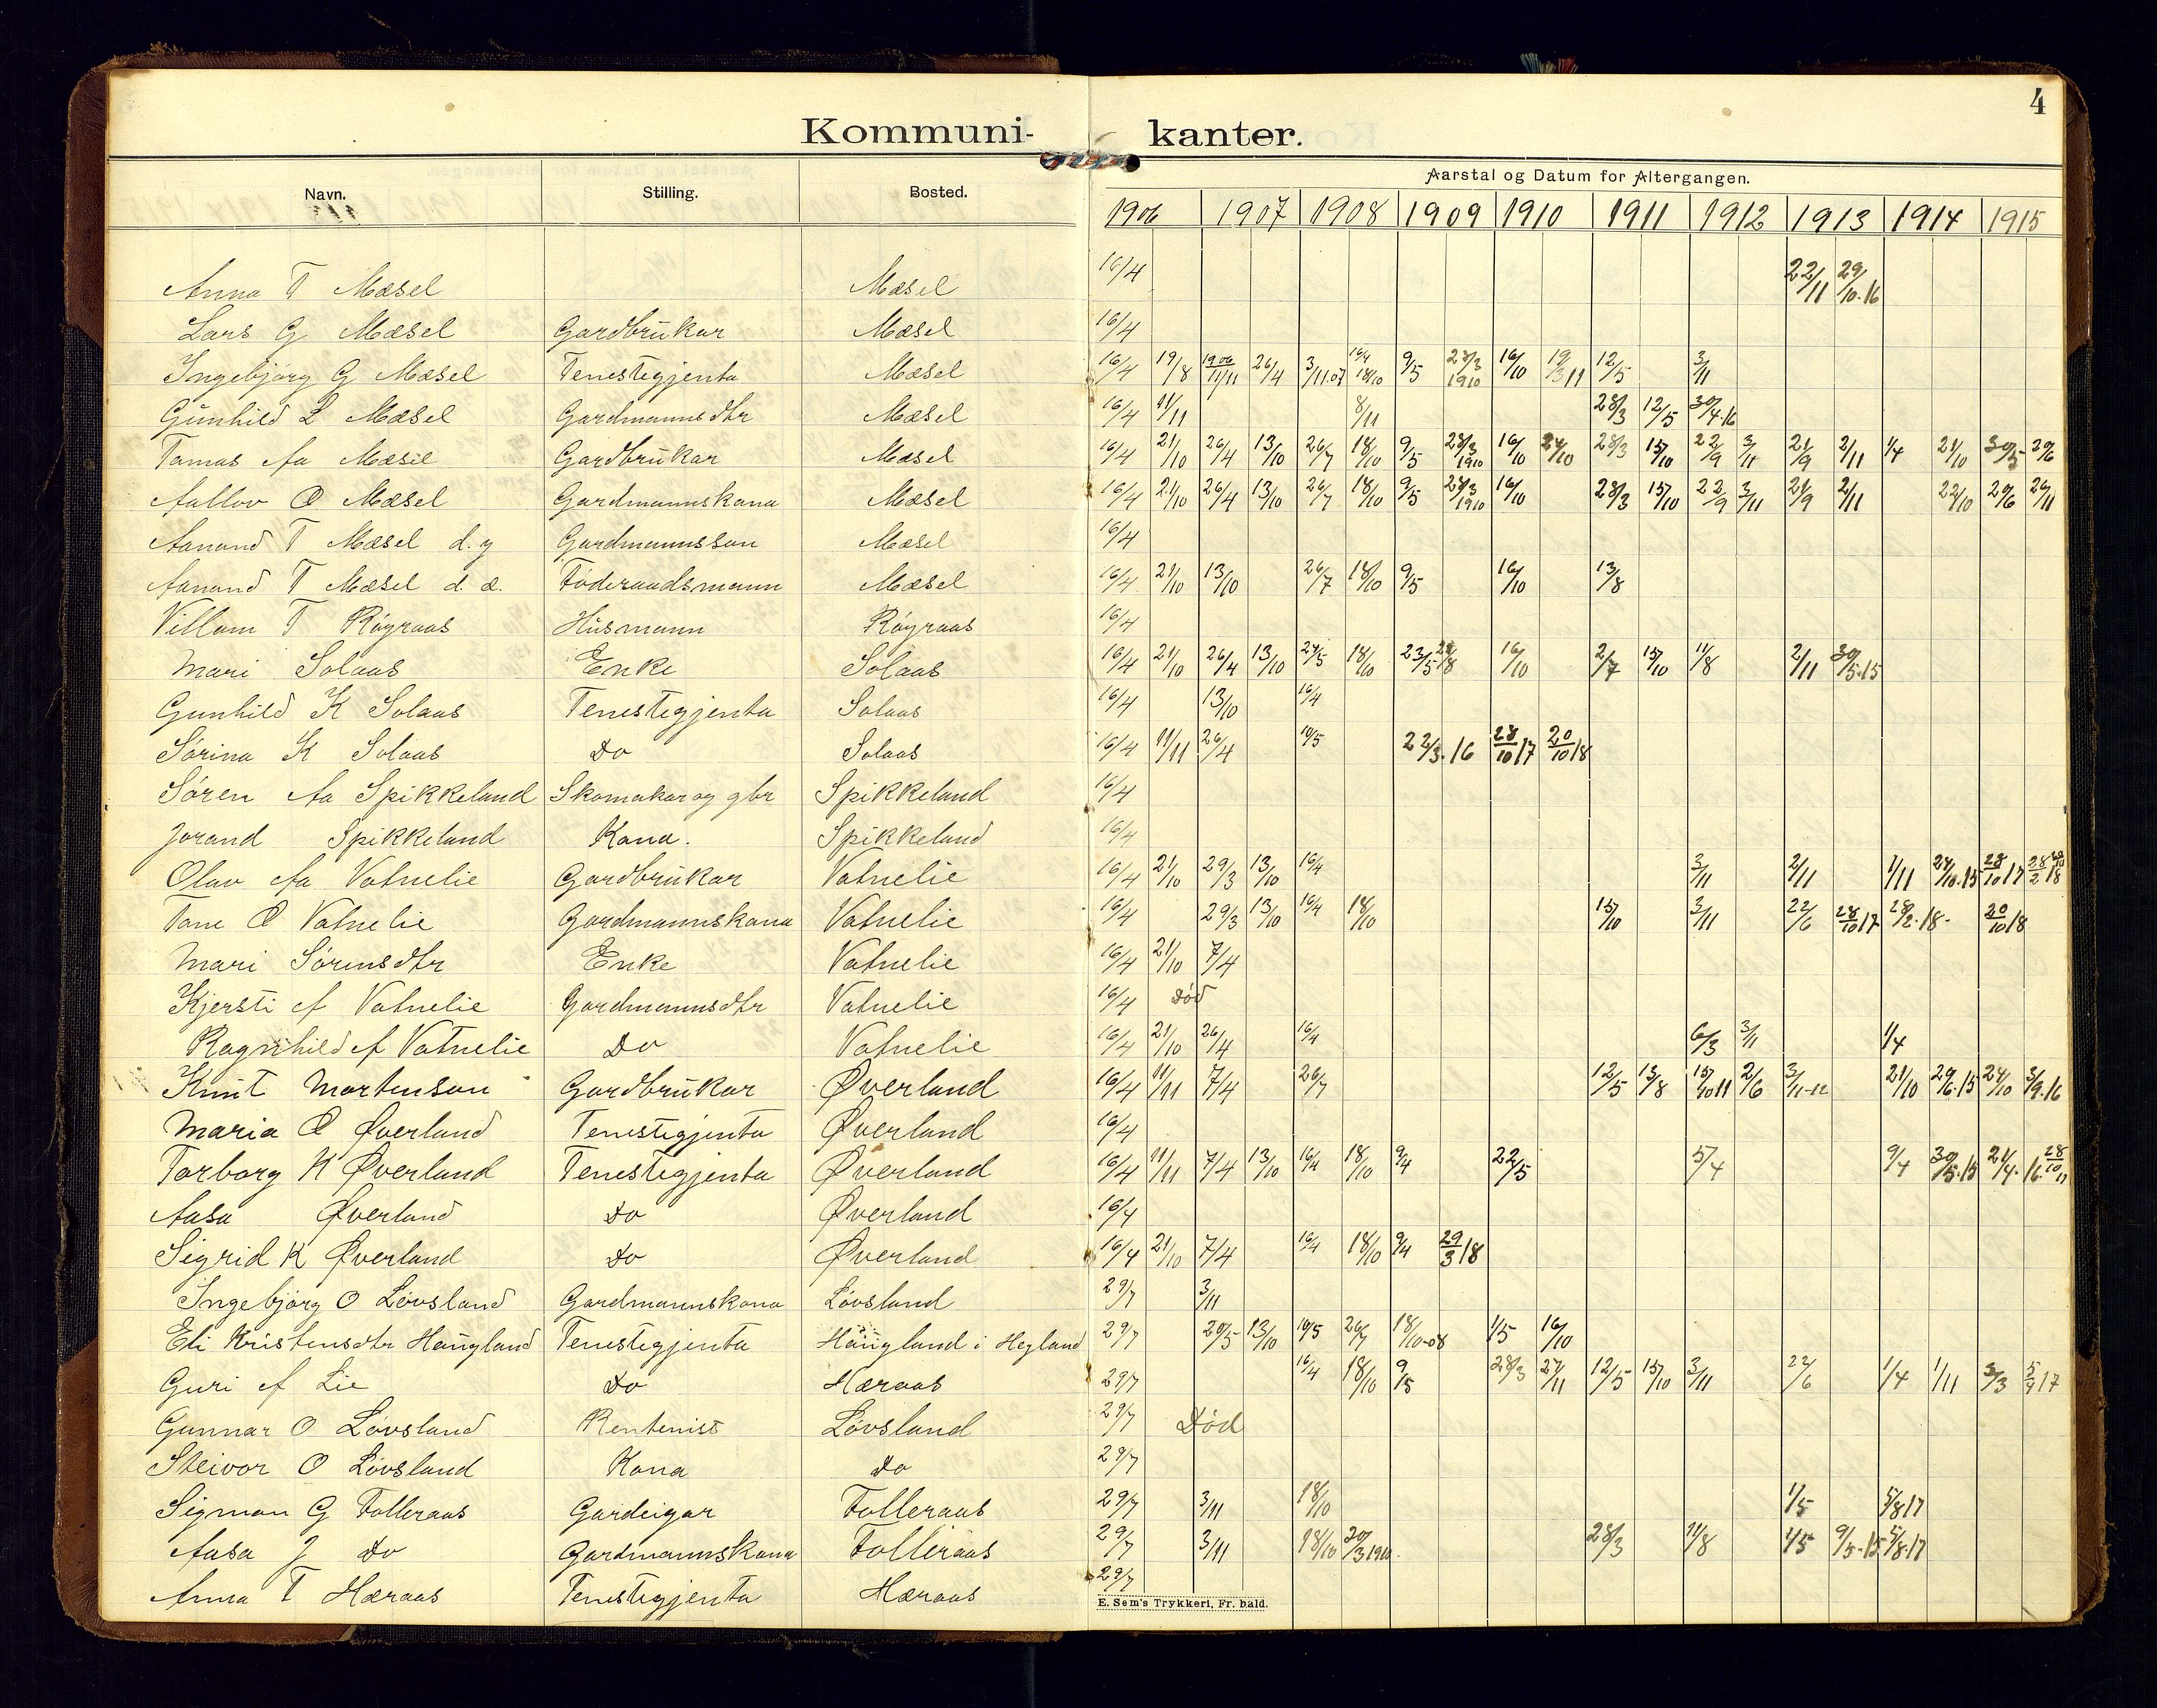 4
Kommuni- kanter.
Navn. Stilling. Bosted. Aarstal og Datum for Altergangen.
1906 1907 1908 1909 1910 1911 1912 1913 1914 1915
Anna T Mæsel Mæsel 16/4 22/11 29/10.16
Lars G Mæsel Gardbrukar Mæsel 16/4
Ingebjørg G Mæsel Tenestegjenta Mæsel 16/4 19/8 1906 11/11 26/4 3/11.07 16/4 18/10 9/5 28/3 1910 16/10 19/3 11 12/5 3/11
Gunhild L Mæsel Gardmannsdtr Mæsel 16/4 11/11 8/11 28/3 12/5 30/4.16
Tomas Aa Mæsel Gardbrukar Mæsel 16/4 21/10 26/4 13/10 26/7 18/10 9/5 28/3 1910 16/10 24/10 28/3 15/10 22/9 3/11 21/9 2/11 1/4 21/10 30/5 29/6
Aallov O Mæsel Gardmannskona Mæsel 16/4 21/10 26/4 13/10 26/7 18/10 9/5 28/3 1910 16/10 28/3 15/10 22/9 3/11 21/9 2/11 22/10 29/6 26/11
Aanond T Mæsel d.y Gardmannsson Mæsel 16/4
Aanond T Mæsel d. æ. Føderaadsmann Mæsel 16/4 21/10 13/10 26/7 18/10 9/5 16/10 13/8
Villom T Røyraas Husmann Røyraas 16/4
Mari Solaas Enke Solaas 16/4 21/10 26/4 13/10 24/5 18/10 23/5 16/10 2/7 15/10 11/8 2/11 30/5.15
Gunhild K Solaas Tenestegjenta Solaas 16/4 13/10 16/4
Sørina K Solaas Do Solaas 16/4 11/11 26/4 10/5 22/3.16 28/10 17 20/10 18
Søren Aa Spikkeland Skomakar og gbr Spikkeland 16/4
Jorand Spikkeland Kona. Spikkeland 16/4
Olav Aa Vatnelie Gardbrukar Vatnelie 16/4 21/10 29/3 13/10 16/4 3/11 2/11 1/11 24/10.15 28/10 17 28/2 18
Tone O Vatnelie Gardmannskona Vatnelie 16/4 29/3 13/10 16/4 18/10 15/10 3/11 22/6 28/10 17 28/2.18- 20/10 18
Mari Sørensdtr Enke Vatnelie 16/4 21/10 7/4
Kjersti A Vatnelie Gardmannsdtr Vatnelie 16/4 Død
Ragnhild A Vatnelie Do Vatnelie 16/4 21/10 26/4 16/4 6/3 3/11 1/4
Knut Mortenson Gardbrukar Øverland 16/4 11/11 7/4 26/7 12/5 13/8 15/10 11 2/6 3/11-12 21/10 29/6.15 24/10 3/9.16
Maria O Øverland Tenestegjenta Øverland 16/4
Torborg K Øverland Tenestegjenta Øverland 16/4 11/11 7/4 13/10 16/4 18/10 9/4 22/5 5/4 9/4 30/5.15 24/4.16 28/10
Aasa Øverland Do Øverland 16/4
Sigrid K Øverland Do Øverland 16/4 21/10 7/4 16/4 18/10 9/4 29/3 18
Ingebjørg O Løvsland Gardmannskona Løvsland 29/7 3/11
Eli Kristensdtr Haugland Tenestegjenta Haugland i Hegland 29/7 20/5 13/10 10/5 26/7 18/10-08 1/5 16/10
Guri A Lie Do Hæraas 29/7 16/4 18/10 9/5 28/3 27/11 12/5 15/10 3/11 22/6 1/4 1/11 3/3 5/9 17
Gunnar O Løvsland Rentenist Løvsland 29/7 Død
Steivor O Løvsland Kona Do 29/7
Sigmon G Folleraas Gardeigar Folleraas 29/7 3/11 18/10 1/5 5/8 17
Aasa J Do Gardmannskona Folleraas 29/7 3/11 18/10 20/3 1910. 28/3 11/8 1/5 9/5-15 5/8.17
Anna T Hæraas Tenestegjenta Hæraas 29/7
E. Sem's Trykkeri, Fr.hald.